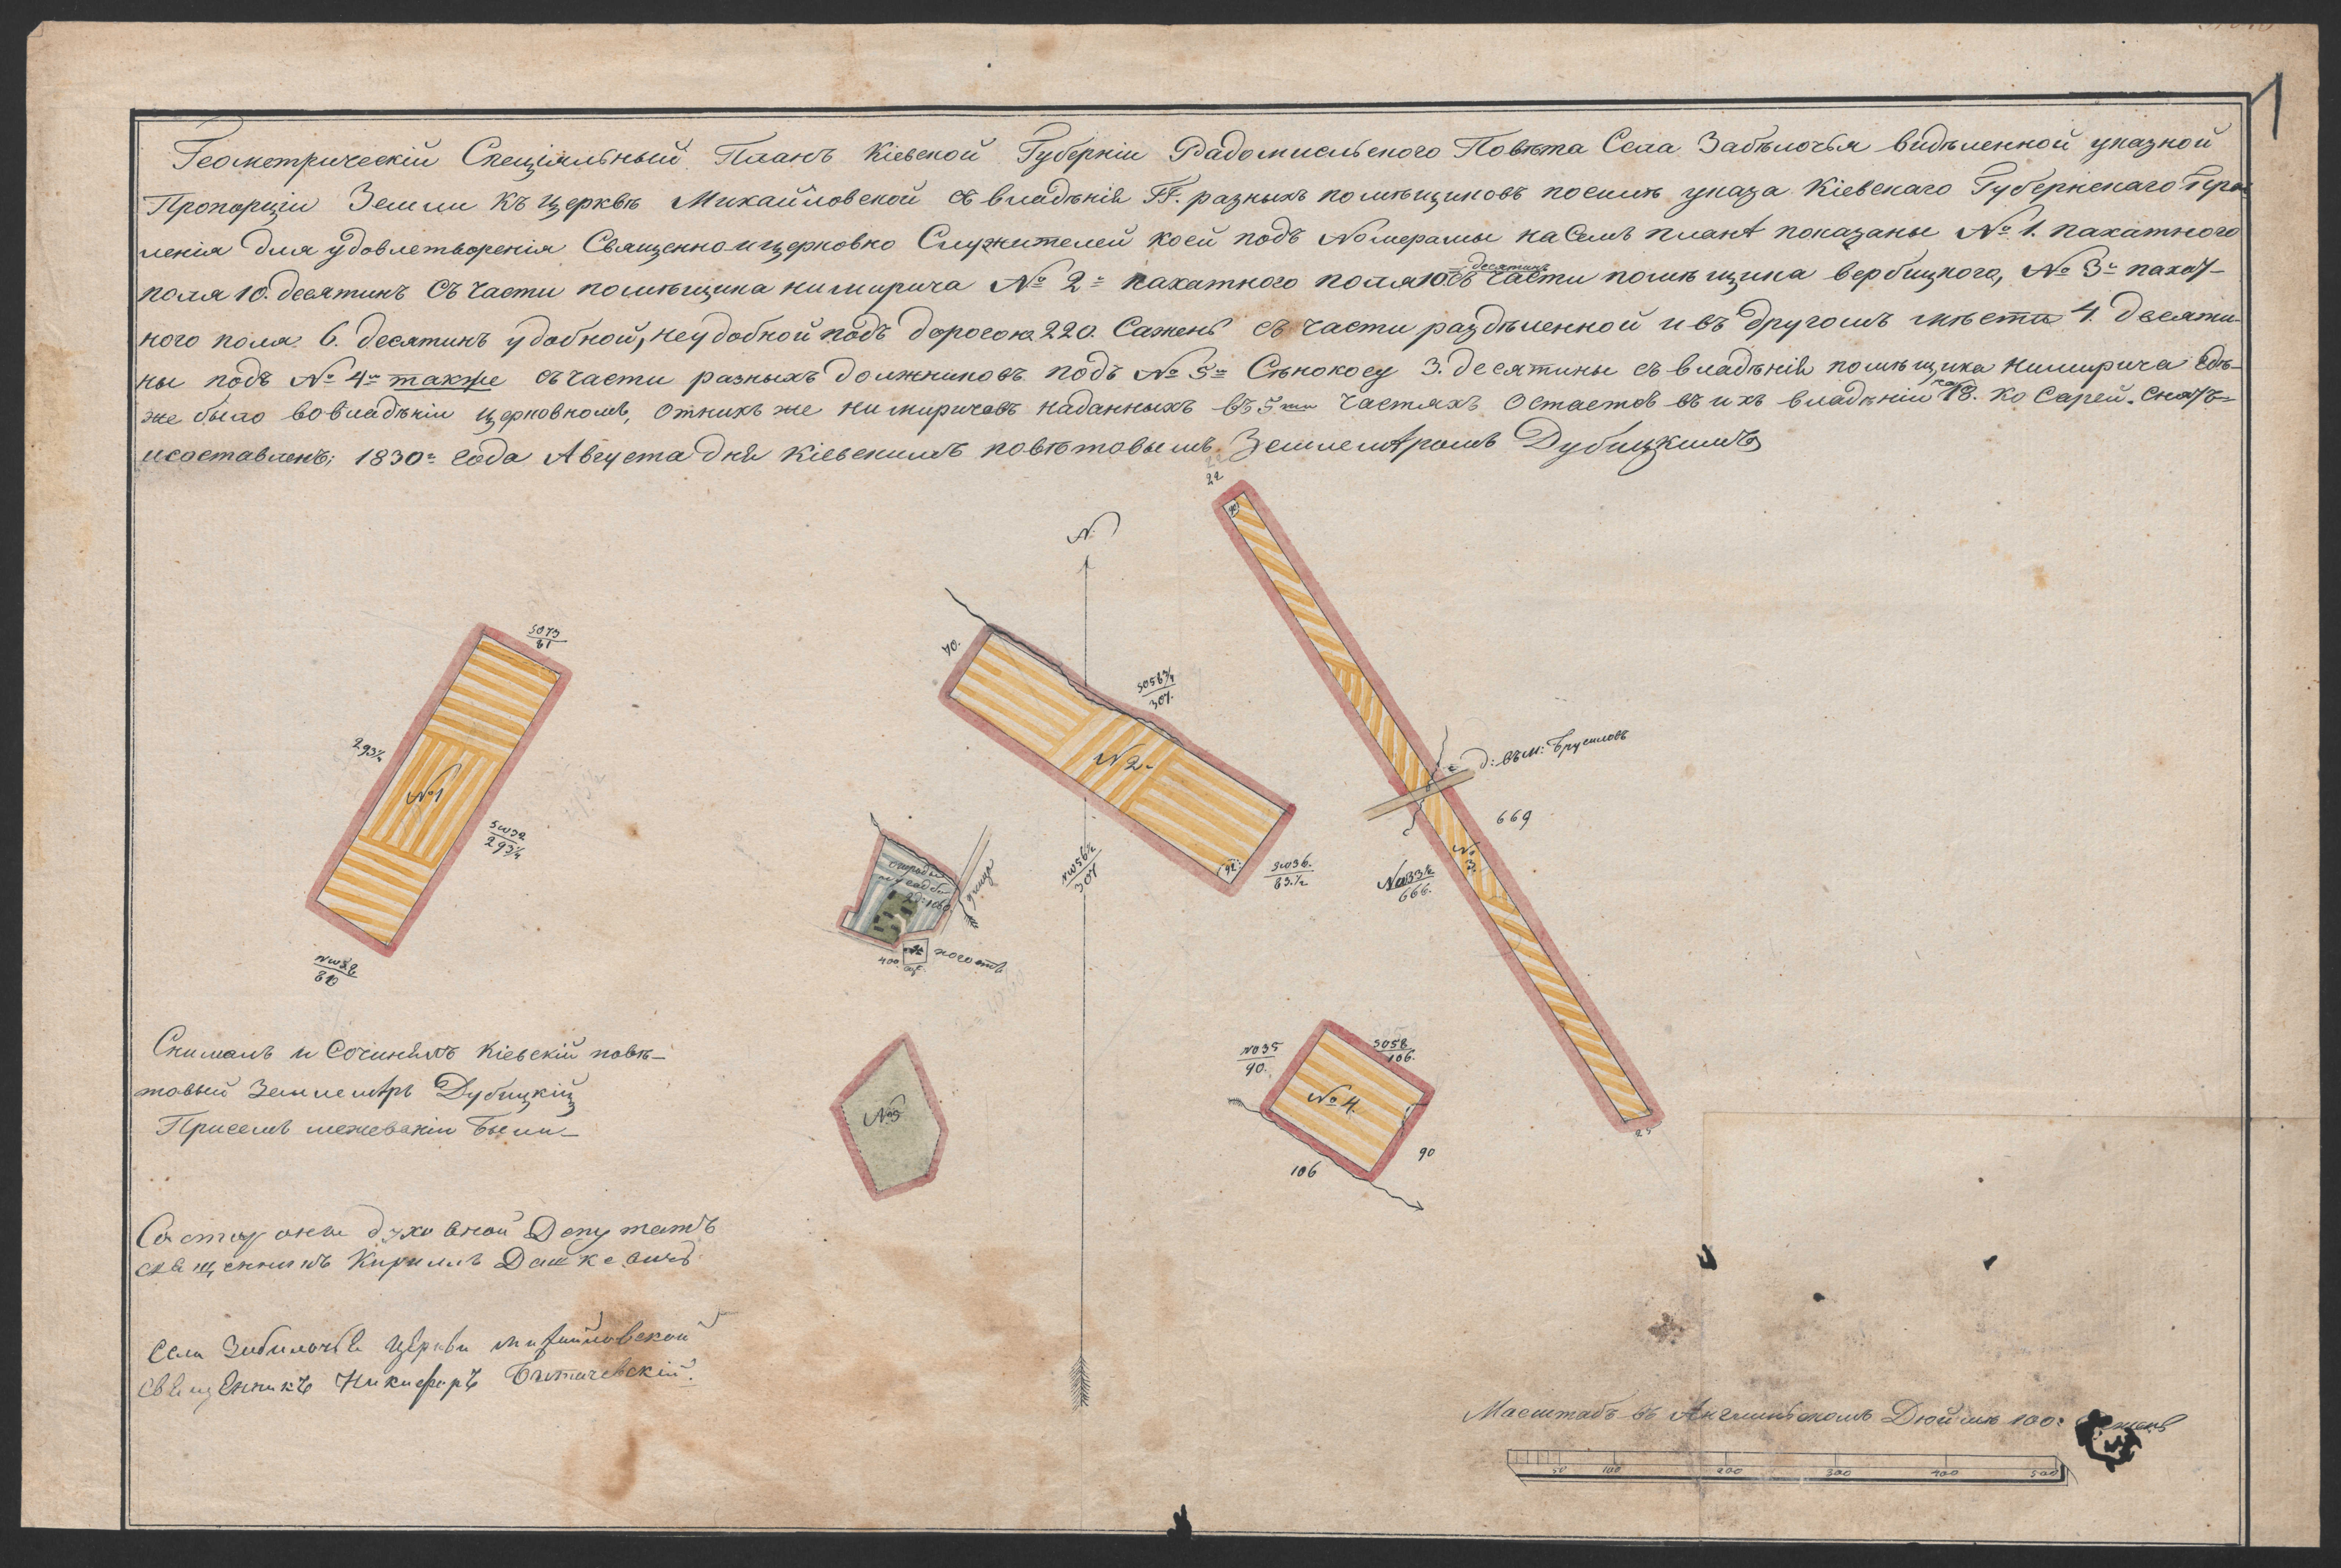 1
Геометрическій Спеціяльный Планъ Кіевской Губерніи Радомисльского Повѣта Села Забѣлочья видѣленной указной
Пропорціи Земли къ церквѣ Михайловской съ владѣнія ГГ. разныхъ помѣщиковъ посилѣ указа Кіевскаго Губернскаго Прав
ленія для удовлетворенія Священно и церковно Служителей коей подъ Номерамы на Семъ планѣ показаны № 1. пахатного
поля 10. десятинъ съ части помѣщика нимирича № 2й пахатного поля 10. десятинъ съ части помѣщика вербицкого, № 3й пахат-
ного поля 6. десятинъ удобной, неудобной подъ дорогою 220. Сажень съ части раздѣленной и въ другомъ мѣсте 4. десяти-
ны подъ № 4м также съ части разныхъ должниковъ подъ № 5м Сѣнокосу 3. десятины съ владѣнія помѣщика нимирича
же было во владѣніи церковномъ, отникъ же нимиричевъ наданныхъ въ 5ти частяхъ Остается въ ихъ владѣніи 18. Снятъ
и составленъ: 1830го Года Августа дня Кіевскимъ повѣтовымъ Землемѣромъ Дубицкимъ
22
N
SO 73
81
293¼
№ 1
SW 32
293¼
NW 32
80
70.
SO 56¾
307.
№ 2
NW 56½
307
SW 36.
83.½
д: въ м: Брусиловъ
669
№ 3
NO 33½
666.
25
огороды
и усадбы
улица
погостъ
400
№ 5
NO 35
90.
SO 58
106.
№ 4.
90
106
Снималъ и Сочинялъ Кіевскій повѣ-
товый Землемѣръ Дубицкій
При семъ межеваніи были
Состороны духовной Депутатъ
священникъ Кирилъ Дашкевичъ
Села Забилочья Церкви михайловской
священникъ Никифоръ
Масштабъ въ Англинскомъ Дюймѣ 100:
50 100 200 300 400 500